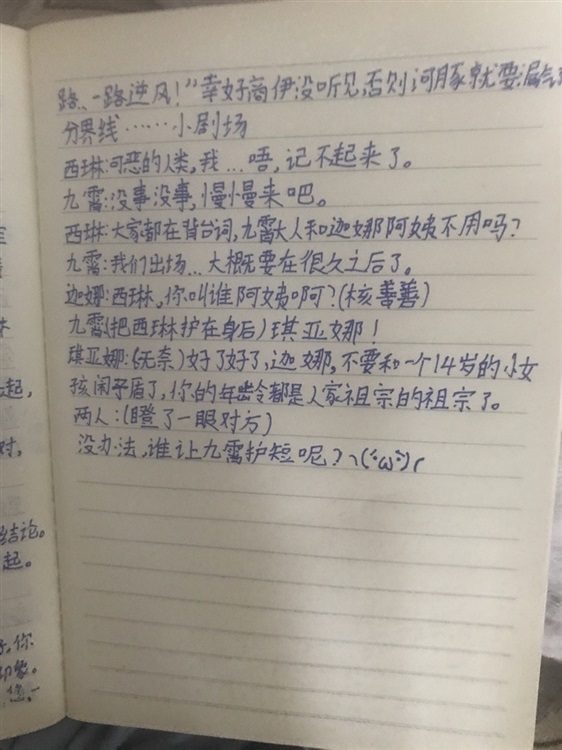 路、一路逆风！”幸好商伊没听见,否则河豚就要漏气了
分界线……小剧场
西琳:可恶的人类,我...唔,记不起来了。
九霄:没事没事,慢慢来吧。
西琳:大家都在背台词,九霄大人和迦娜阿姨不用吗?
九霄:我们出场...大概要在很久之后了。
迦娜:西琳,你叫谁阿姨啊?(核善善)
九霄(把西琳护在身后)琪亚娜!
琪亚娜:(无奈)好了好了,迦娜,不要和一个14岁的小女
孩闹矛盾了,你的年龄都是人家祖宗的祖宗了。
两人:(瞪了一眼对方)
没办法,谁让九霄护短呢?ヽ(·ω·)ʃ
起,
对,
结论。
起。
你
印象。